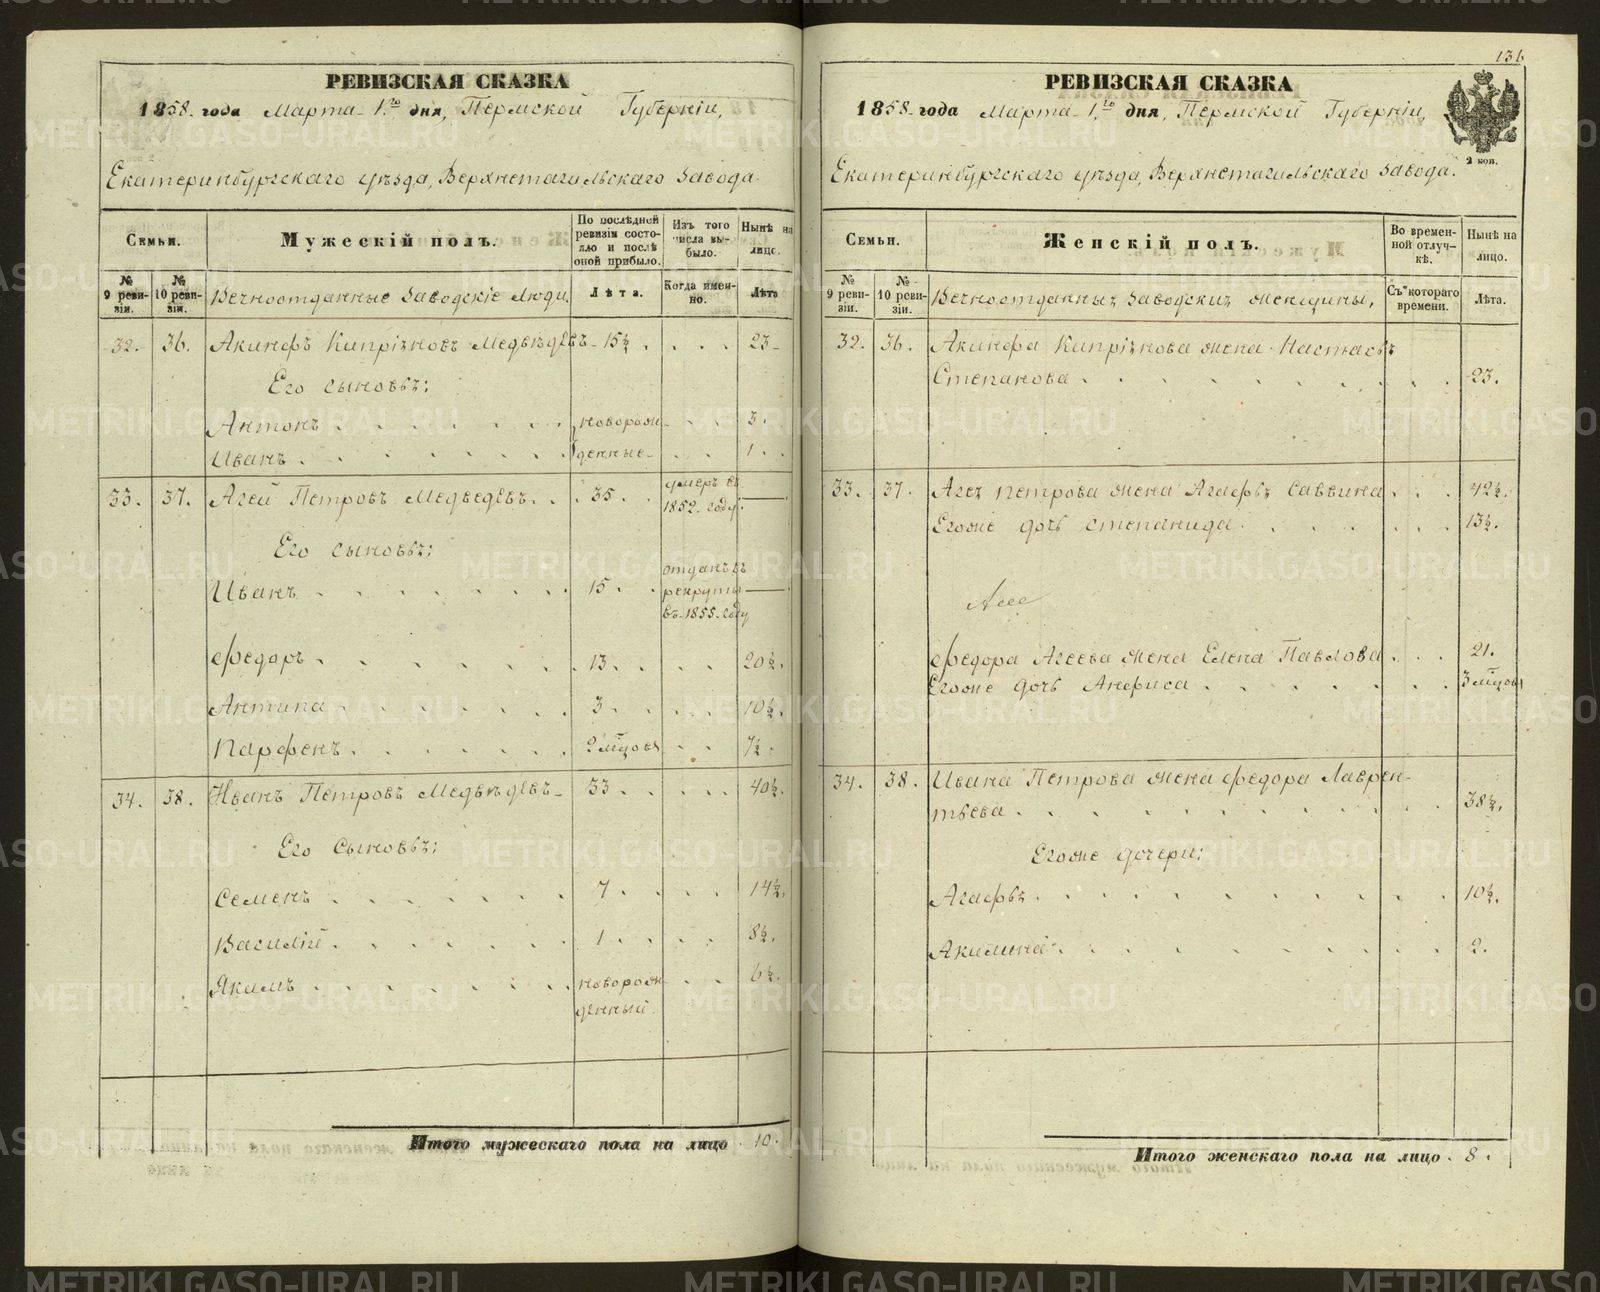 РЕВИЗСКАЯ СКАЗКА
1858. года Марта 1.го дня, Пермской Губерніи,
Екатеринбургскаго уѣзда, Верхнетагильскаго Завода.
Семьи.
Мужескій полъ.
По послѣдней ревизіи состояло и послѣ оной прибыло.
Изъ того числа выбыло.
Нынѣ на лицо.
№ 9 ревизіи.
№ 10 ревизіи.
Вечноотданные Заводскіе Люди.
Лѣта.
Когда именно.
Лѣта
32. 36. Акинфъ Кипріяновъ Медвѣдевъ 15½ . . . . 23
Его сыновья:
Антонъ новорож- 3.
Иванъ денные 1.
33. 37. Агей Петровъ Медведевъ 35. умеръ въ
1852. году.
Его сыновья:
Иванъ 15. отданъ въ
рекруты
въ 1855. году
Федоръ 13. 20½.
Антипа 3. 10½.
Парфенъ 2 мѣсяца 7½.
34. 38. Иванъ Петровъ Медвѣдевъ 33. 40½.
Его сыновья:
Семенъ 7. 14½.
Василій 1. 8½.
Якимъ новорож- 6½.
денный.
Итого мужескаго пола на лицо 10.
136
РЕВИЗСКАЯ СКАЗКА
1858. года Марта 1.го дня, Пермской Губерніи,
2 коп.
Екатеринбургскаго уѣзда, Верхнетагильскаго Завода.
Семьи.
Женскій полъ.
Во временной отлучкѣ.
Нынѣ на лицо.
№ 9 ревизіи.
№ 10 ревизіи.
Вечноотданныя Заводскія женщины,
Съ котораго времени.
Лѣта.
32. 36. Акинфа Кипріянова жена Настасья
Степанова 23.
33. 37. Агея Петрова жена Агафья Саввина 42½.
Егоже дочь Степанида 13½.
Аге
Федора Агеева жена Елена Павлова 21.
Егоже дочь Анфиса 3 мѣсяца
34. 38. Ивана Петрова жена Федора Лаврен-
тьева 38½.
Егоже дочери:
Агафья 10½.
Акилина 2.
Итого женскаго пола на лицо 8.
METRIKI.GASO-URAL.RU